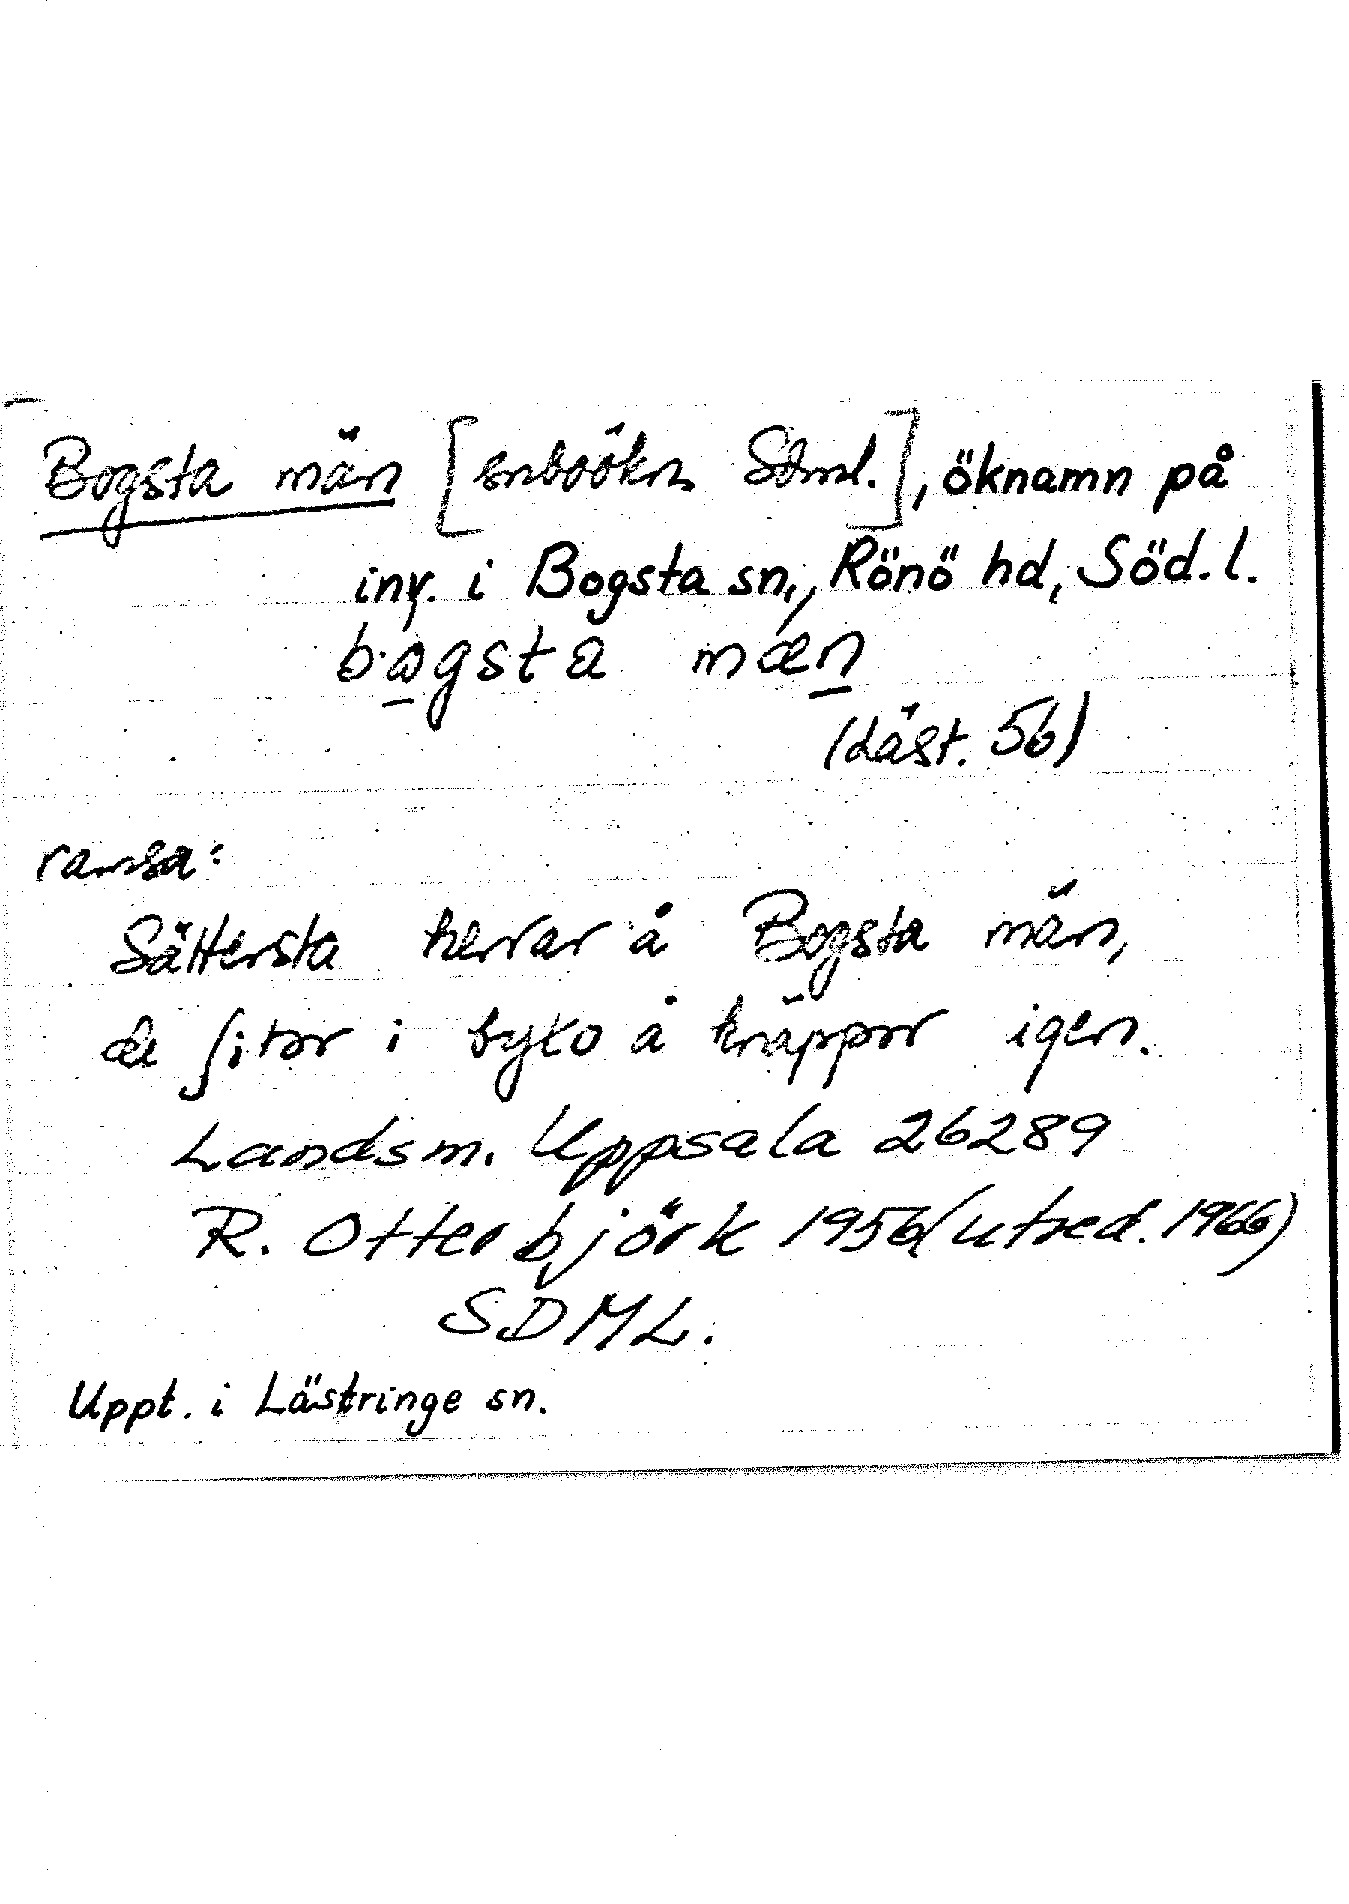 Bogsta män [snboökn Sdml.], öknamn på
inv. i Bogsta sn., Rönö hd, Söd.l.
bogsta mæn
(Läst. 56)
ramsa:
Sättersta herrar å Bogsta män,
de sitor i byko å knäppor igen.
Landsm. Uppsala 26289
R. Otterbjörk 1956 (utred. 1966)
SDML.
Uppt. i Lästringe sn.